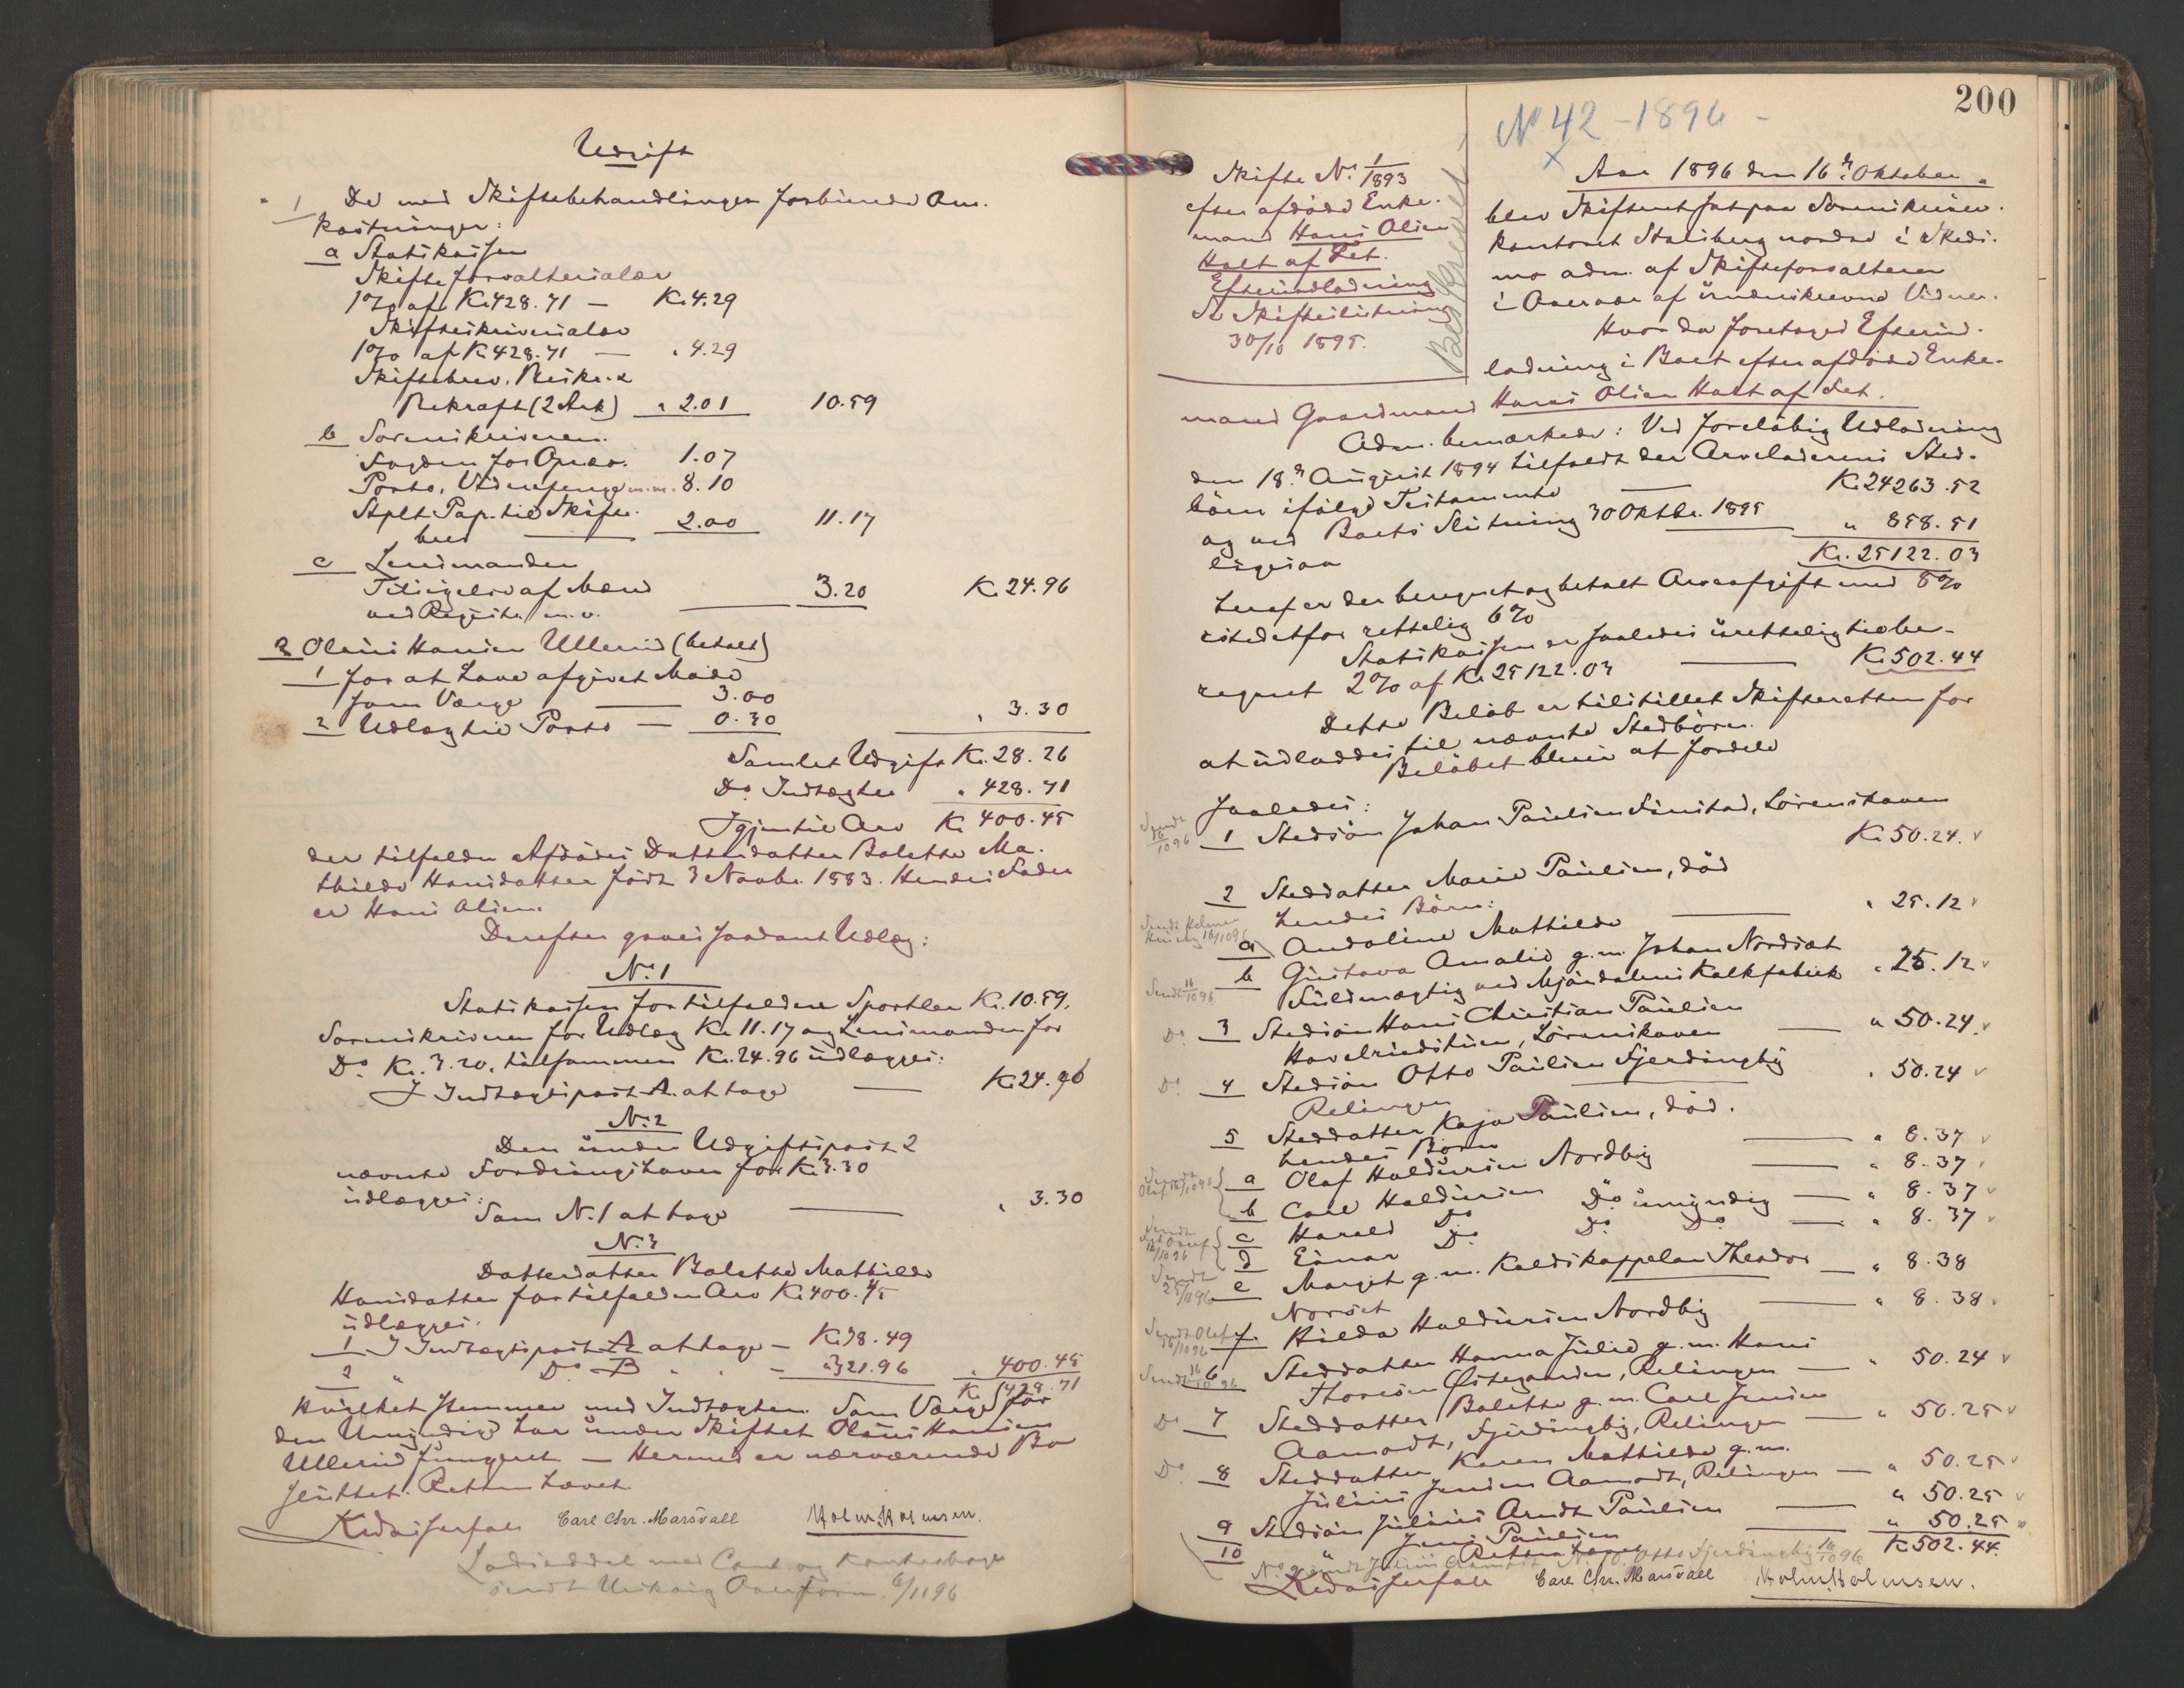 Udgift
1 De med Skiftebehandlingen forbundne Om-
kostninger:
a Statskassen
Skifteforvaltersalær
1% af Kr 428.71 — Kr. 4.29
Skifteskriversalær
1% af Kr 428.71 — " 4.29
Skiftebrev, Beskr. &
Rekraft (2 Ark) " 2.01 10.59
b Sorenskriveren
Fogden for 1.07
Porto, Vidnepenge m.m. 8.10
Stplt. Pap. til Skifte-
brev 2.00 11.17
c Lensmanden
Tilsigelse af Mænd
ved Registr. m.v. 3.20 Kr. 24.96
2 Oluis Hansen Ullerud (betalt)
1 for at have afgivet Møde
som Værge 3.00
2 Udlæg til Porto — 0.30 " 3.30
Samlet Udgift Kr. 28.26
Do Indtægter " 428.71
Igjen til Arv Kr 400.45
der tilfalder Afdødes Datterdatter Bolette Ma-
thilde Hansdatter født 3 Novbr. 1883. Hendes Fader
er Hans Olsen.
Derefter gaves saadant Udlæg:
No. 1
Statskassen for tilfaldne Sportler Kr. 10.59,
Sorenskriveren for Udlæg Kr. 11.17 og Lensmanden for
Do Kr. 3.20, tilsammen Kr. 24.96 udlægges:
I Indtægtspost A. at tage — Kr. 24.96
No. 2
Den under Udgiftspost 2
nævnte Fordringshaver for Kr. 3.30
udlægges:
Som N. 1 at tage — " 3.30
No. 3
Datterdatter Bolette Mathilde
Hansdatter for tilfalden Arv Kr. 400.45
udlægges.
1 I Indtægtspost A at tage — Kr. 78.49
2 " Do B " " — " 321.96 " 400.45
Kr. 428.71
hvilket stemmer med Indtægten. Som Værge for
den Umyndige har under Skiftet Oluis Hansen
Ullerud fungeret. — Hermed er nærværende Bo
sluttet. Retten hævet.
Carl Chr. Marsvall Holm Holmsen.
Ladseddel med og Kontrabog
sendt Overform. 6/11 96
200
No 42 - 1896 -
x
Skifte No. 1/1893
efter afdøde Enke-
mand Hans Olsen
Holt af Fet.
Efterudlodning
Se Skifteslutning
30/10 1895.
Aar 1896 den 16de Oktober
blev Skifteret sat paa Sorenskriver-
kontoret Stalsberg nordre i Skeds-
mo adm. af Skifteforvalteren
i Overvær af undersk revne Vidner.
Hvor da foretoges Efterud-
lodning i Boet efter afdøde Enke-
mand Gaardmand Hans Olsen Holt af Fet.
Adm. bemærkede: Ved foreløbig Udlodning
den 18de August 1894 tilfaldt der Arveladerens Sted-
børn ifølge Testamente — Kr. 24263.52
og ved Boets Slutning 30 Oktbr. 1895
ligesaa " 858.51
Kr. 25122.03
heraf er der beregnet og betalt Arveafgift med 8%
istedetfor rettelig 6%
Statskassen er saaledes urettelig tilbe-
regnet 2% af Kr. 25122.03 — Kr. 502.44
Dette Beløb er tilstillet Skifteretten for
at udloddes til nævnte Stedbørn.
Beløbet blev at fordele
saaledes:
1 Stedsøn Johan Paulsen Finstad, Lørenskoven
Kr. 50.24. v
2 Steddatter Marie Paulsen, død
hendes Børn:
a Andoline Mathilde — " 25.12 v
b Gustava Amalie g.m. Johan Nordsæt
Fuldmægtig ved Mjøndalens Kalkfabrik " 25.12 v
3 Stedsøn Hans Christian Paulsen
, Lørenskoven — " 50.24 v
4 Stedsøn Otto Paulsen Fjerdingby
Relingen " 50.24 v
5 Steddatter Kaja Paulsen, død.
hendes Børn
a Olaf Haldursen Nordby — " 8.37 v
b Carl Haldursen Do umyndig — " 8.37 v
c Harald Do Do Do — " 8.37 v
d Einar Do Do Do — " 8.37 v
e Margit g.m. Kaldskappelan Theodor
Norset — " 8.38
f Hilda Haldursen Nordby — " 8.38
6 Steddatter Hanna Julie g.m. Hans
Thoresen Østegaarden, Relingen — " 50.24 v
7 Steddatter Bolette g.m. Carl Jensen
Aamodt, Fjerdingby, Relingen — " 50.25 v
8 Steddatter Karen Mathilde g.m.
Julius Jensen Aamodt, Relingen — " 50.25 v
9 Stedsøn Julius Arndt Paulsen — " 50.25 v
10 " Jens Paulsen — " 50.25
Kr. 502.44.
Retten hævet
Carl Chr. Marsvall Holm Holmsen.